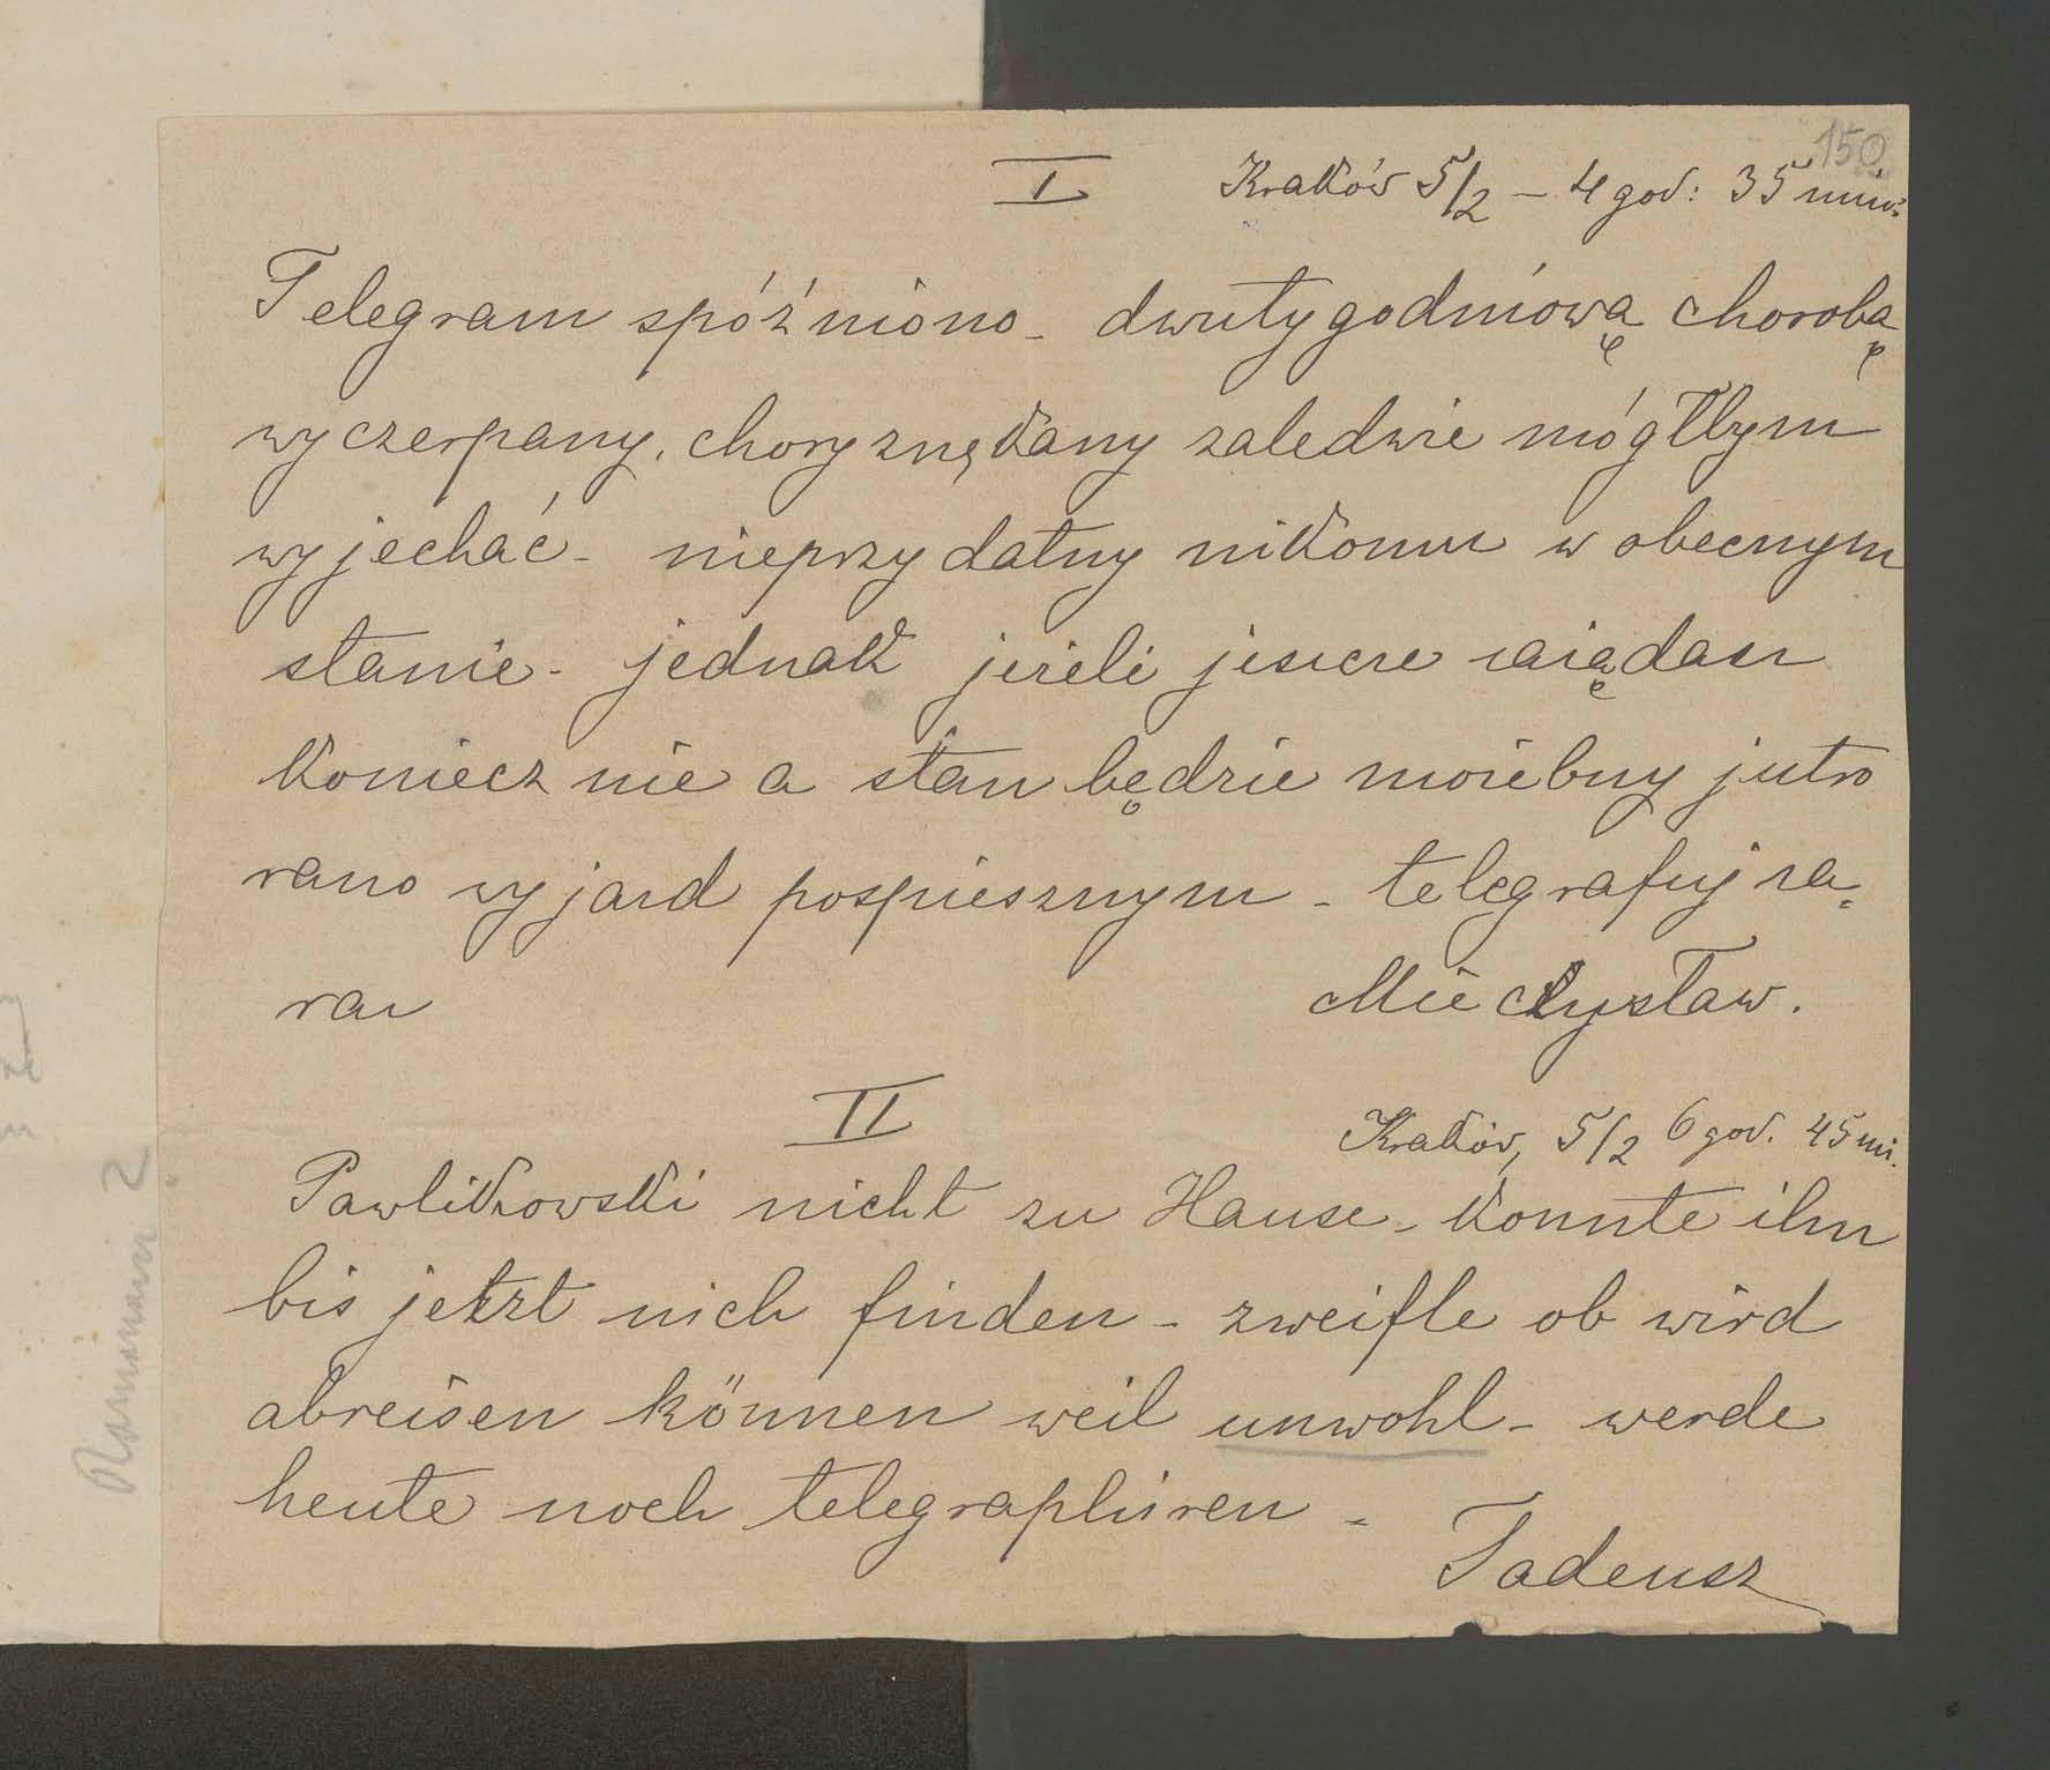 150
I Kraków 5/2 – 4 god: 35 min:
Telegram spóźniono – dwutygodniową chorobą
wyczerpany, chory znękany zaledwie mógłbym
wyjechać – nieprzydatny nikomu w obecnym
stanie – jednak jeżeli jeszcze zażądasz
koniecznie a stan będzie możebny jutro
rano wyjazd pospiesznym – telegrafuj za=
raz Mieczysław.
II Kraków, 5/2 6 god. 45 mi.
Pawlikowski nicht zu Hause – konnte ihn
bis jetzt nich finden – zweifle ob wird
abreisen können weil unwohl – werde
heute noch telegraphiren –
Tadeusz